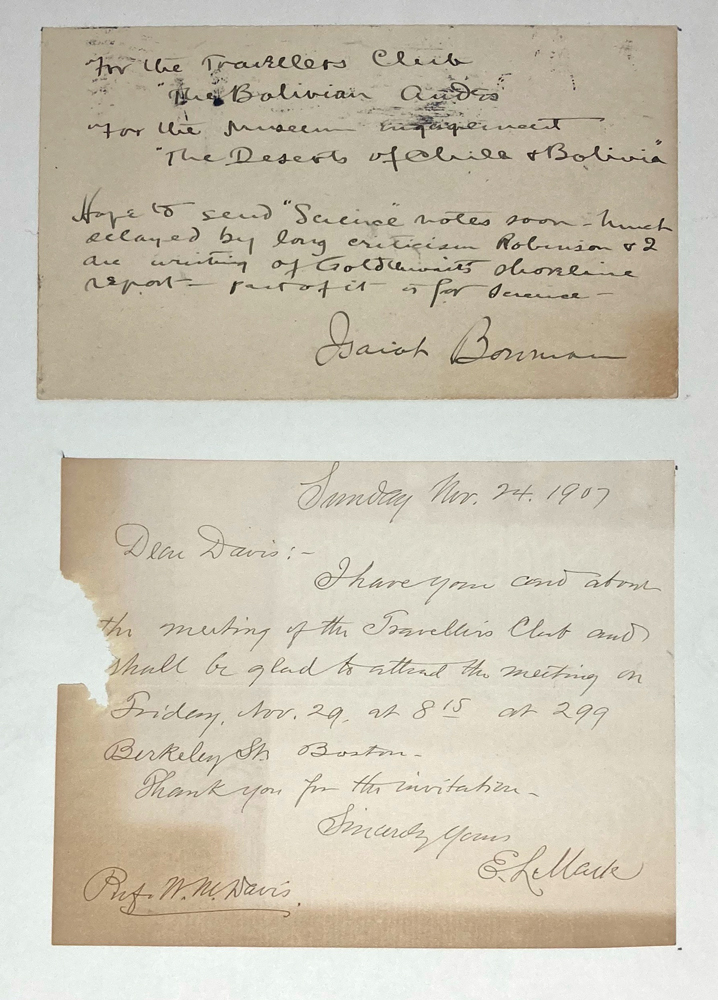 For the Travellers Club
"The Bolivian Andes"
For the Museum engagement
"The Deserts of Chile & Bolivia"
Hope to send "Science" notes soon - much
delayed by long criticism Robinson & I
are writing of Goldthwait's shoreline
report - part of it is for Science -
Isaiah Bowman
Sunday Nov. 24. 1907
Dear Davis:-
I have your card about
the meeting of the Travellers Club and
shall be glad to attend the meeting on
Friday, Nov. 29, at 8 15 at 299
Berkeley St. Boston -
Thank you for the invitation -
Sincerely yours
E. L. Mark
Prof. W. M. Davis.